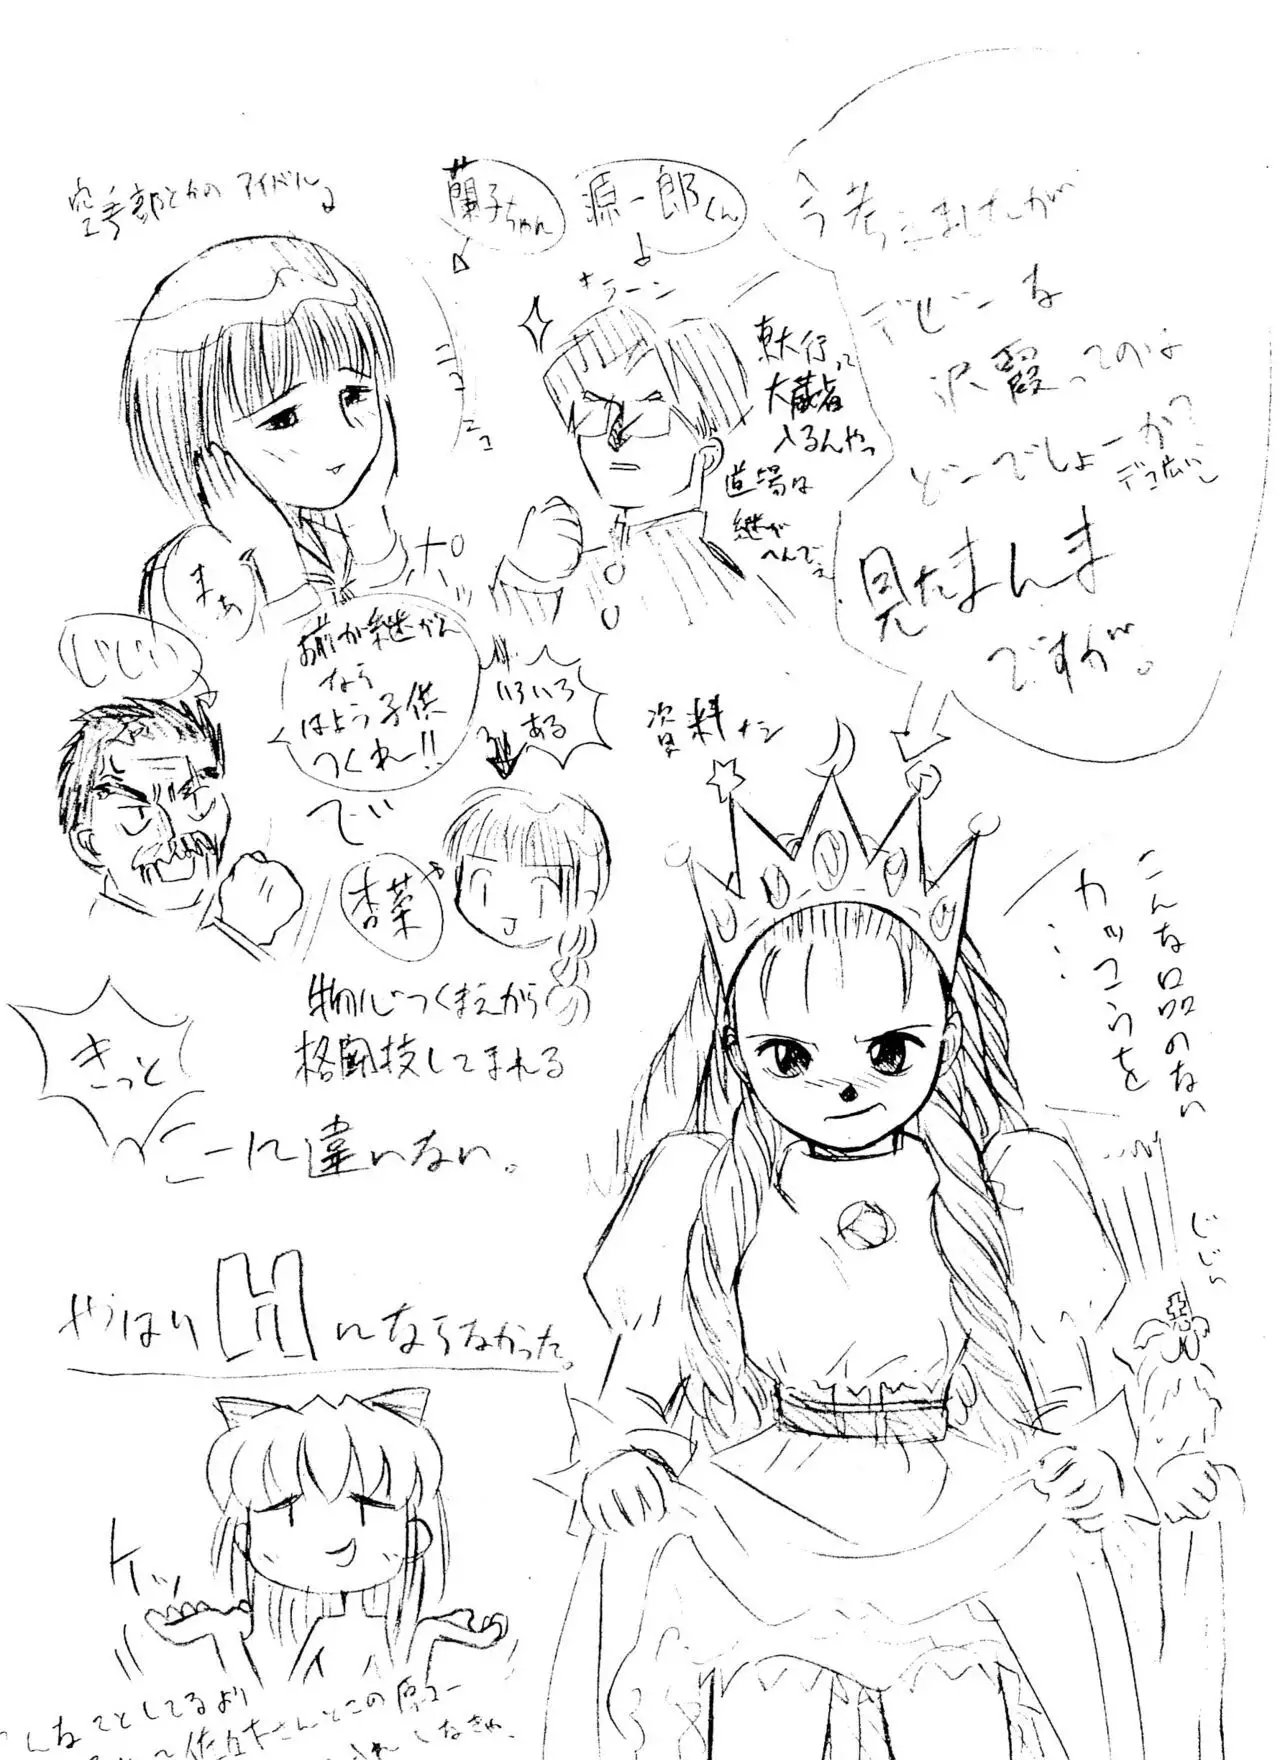 空手部とかのアイドル
蘭子ちゃん
源一郎くん
キラーン
ニコニコ
ポッ
まぁ
東大行って
大蔵省
入るんやっ
道場は
継が
へんでぇ
今考えましたが
デビーな
沢霞ってのは
どーでしょーか?
デコ広いし
見たまんま
ですが。
じじい
お前が継がん
なら
はよう子供
つくれー!!
で
いろいろ
ある
杏菜
資料ナシ
物心つくまえから
格闘技してまれる
きっと
こーに違いない。
こんな品のない
カッコウを
……
じじい
やっぱりHにならなかった。
ケッ
こんなことしてるより
佐々木さんとこの原コー